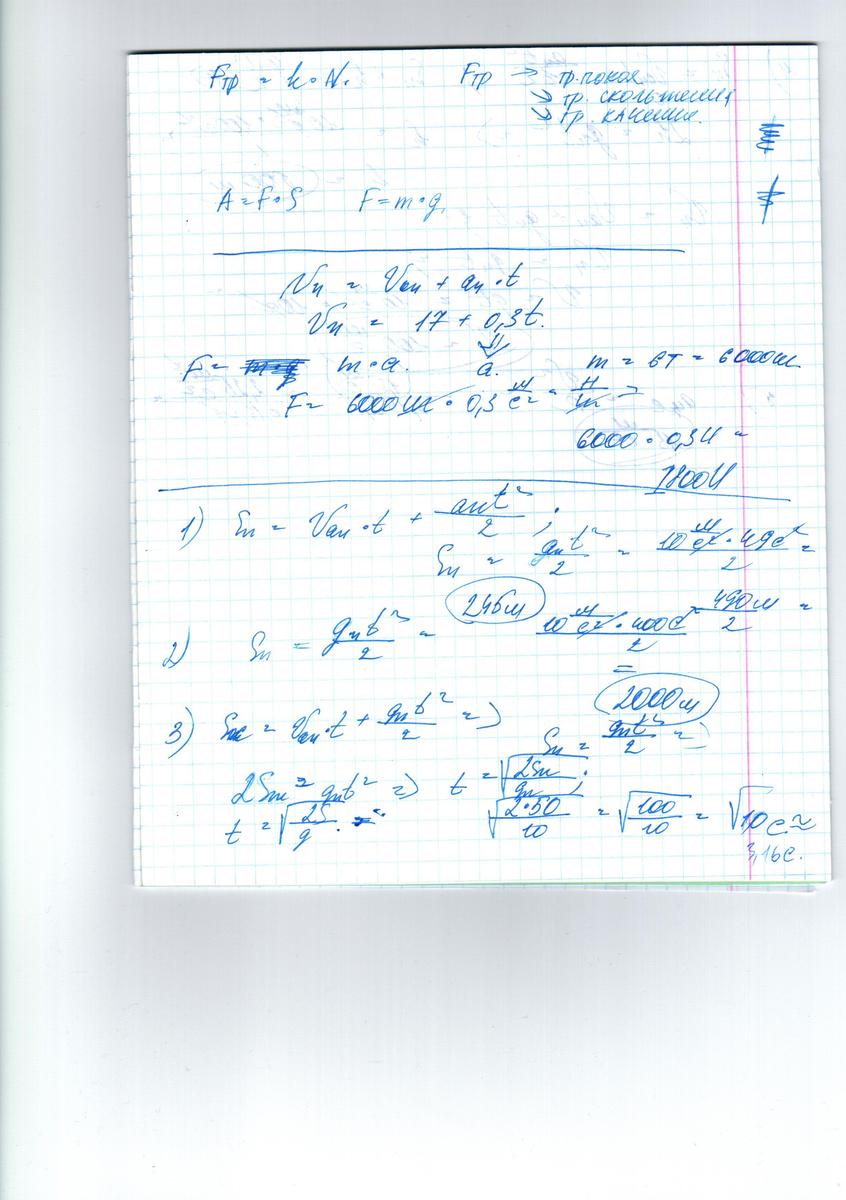 Fтр = k • N.   Fтр → тр. покоя
↘ тр. скольжения
↘ тр. качения.
A = F • S   F = m • g
Vx = Vox + ax • t
Vx = 17 + 0,3t.
F = m • a.   a.   m = 6т = 6000кг
F = 6000кг • 0,3 м/с² = Н/кг =
6000 • 0,3Н =
1800Н
1) Sx = Vox • t + axt²/2 ;
Sx = gxt²/2 = 10 м/с² • 49с²/2 =
245м   490м/2 =
2) Sx = gxt²/2 = 10 м/с² • 400с²/2
=
2000м
3) Sx = Vox • t + gxt²/2 =>
Sx = gxt²/2 =>
2Sx = gxt² => t = √2Sx/gx ;
t = √2S/g . √2•50/10 = √100/10 = √10 c ≈
3,16с.